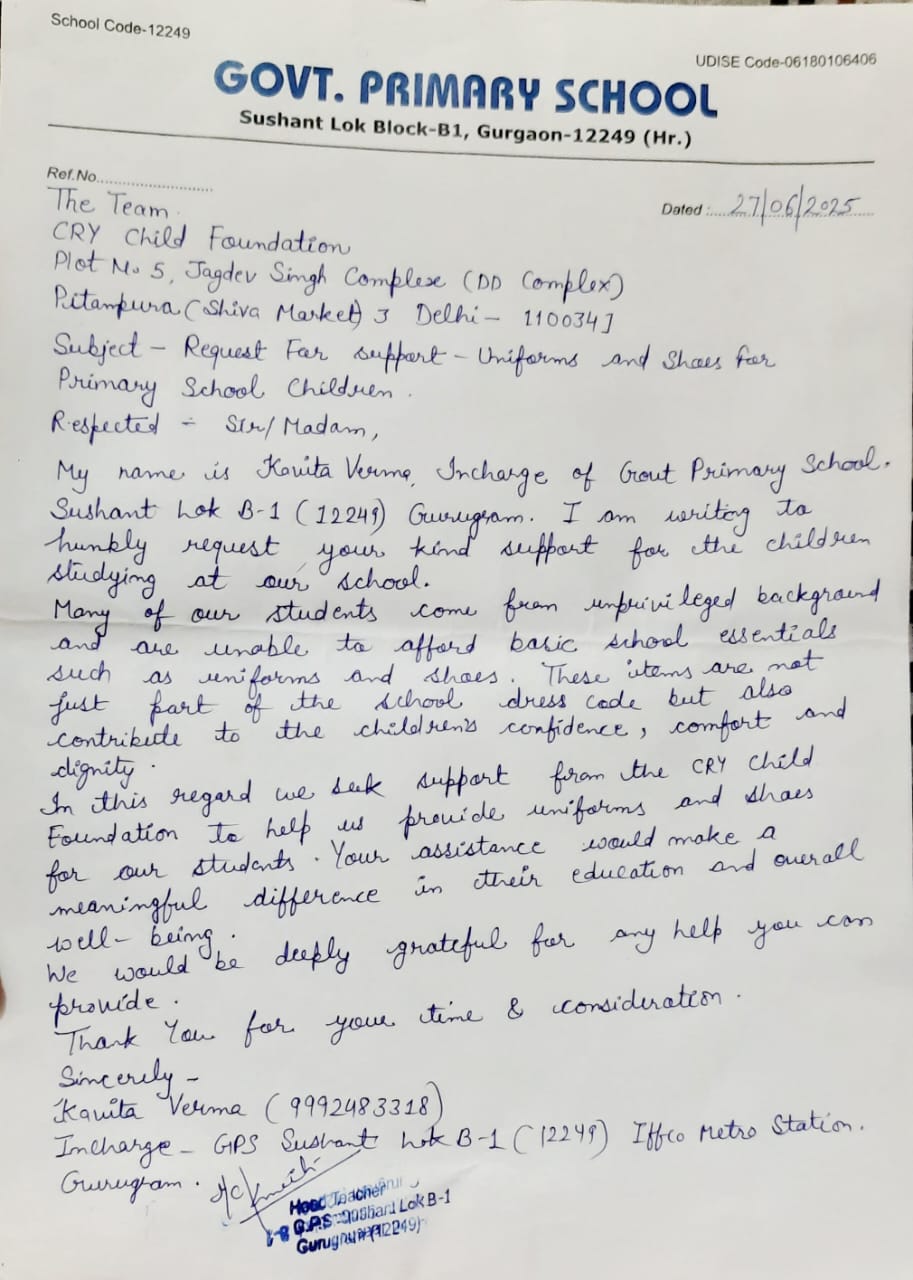 School Code-12249
UDISE Code-06180106406
GOVT. PRIMARY SCHOOL
Sushant Lok Block-B1, Gurgaon-12249 (Hr.)
Ref.No.
Dated : 27/06/2025
The Team.
CRY Child Foundation
Plot No 5, Jagdev Singh Complexe (DD Complex)
Pitampura (Shiva Market) 3 Delhi - 110034]
Subject - Request For support - Uniforms and Shoes for
Primary School Children.
Respected - Sir/Madam,
My name is Kavita Verma, Incharge of Govt Primary School.
Sushant Lok B-1 (12249) Gurugram. I am writing to
humbly request your kind support for the children
studying at our school.
Many of our students come from unprivileged background
and are unable to afford basic school essentials
such as uniforms and shoes. These items are not
just part of the school dress code but also
contribute to the children's confidence, comfort and
dignity.
In this regard we seek support from the CRY Child
Foundation to help us provide uniforms and shoes
for our students. Your assistance would make a
meaningful difference in their education and overall
well-being.
We would be deeply grateful for any help you can
provide.
Thank You for your time & consideration.
Sincerely -
Kavita Verma (9992483318)
Incharge - GPS Sushant Lok B-1 (12249) Iffco Metro Station.
Gurugram.
Head Teacher
G.P.S. Sushant Lok B-1
Gurugram (12249)